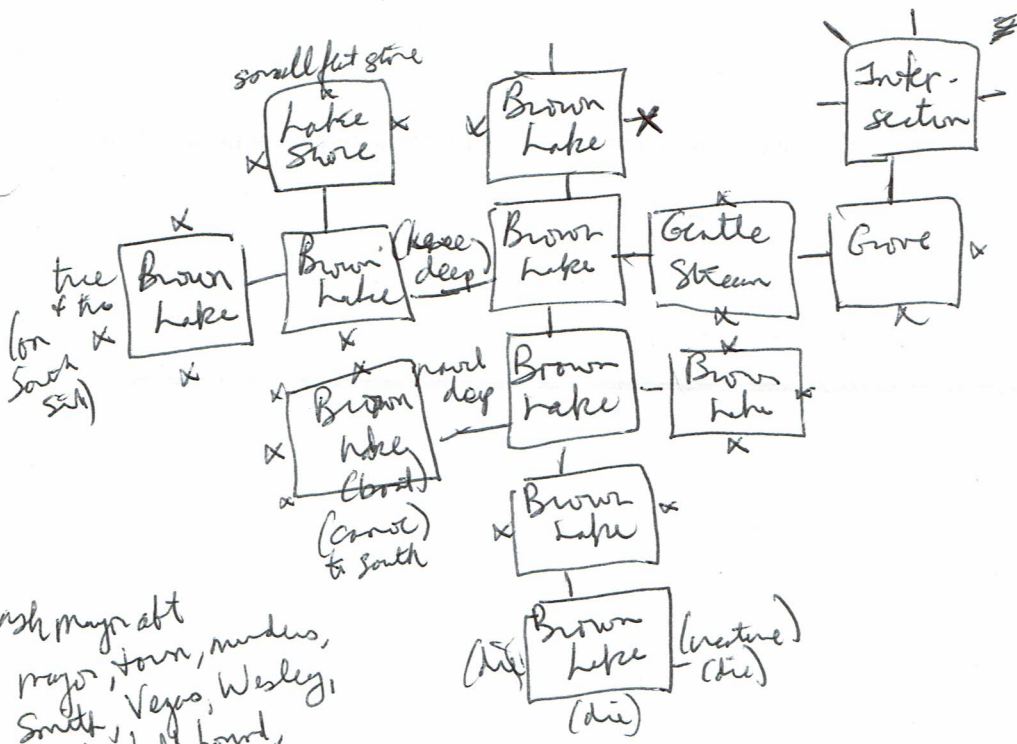 small flat stone
Lake
Shore
Brown
Lake
Inter-
section
Brown
Lake
Brown
Lake
(knee
deep)
Brown
Lake
Gentle
Stream
Grove
tree
(on
South
side)
Brown
Lake
(boat)
(canoe)
to south
deep
Brown
Lake
Brown
Lake
Brown
Lake
Brown
Lake
(die)
(creature)
(die)
(die)
ask mayor abt
mayor, town, murders,
Smith, Vegas, Wesley,